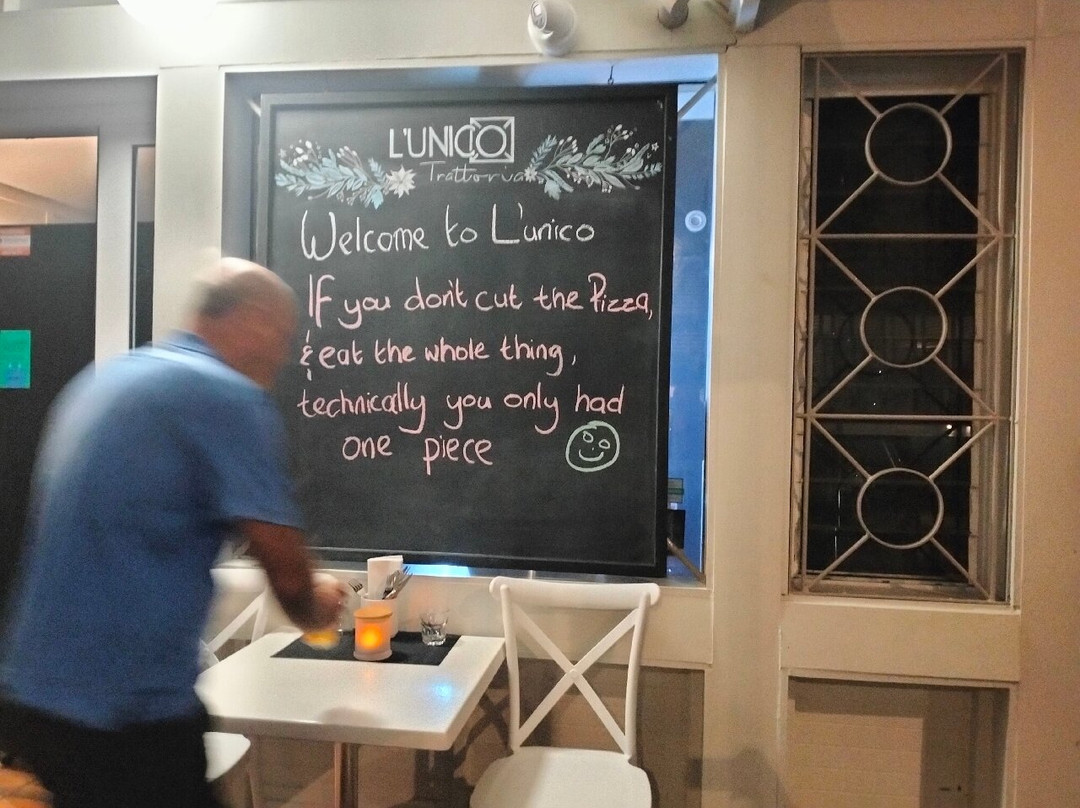 L'UNICO
Trattoria
Welcome to L'unico
If you don't cut the Pizza,
& eat the whole thing,
technically you only had
one piece